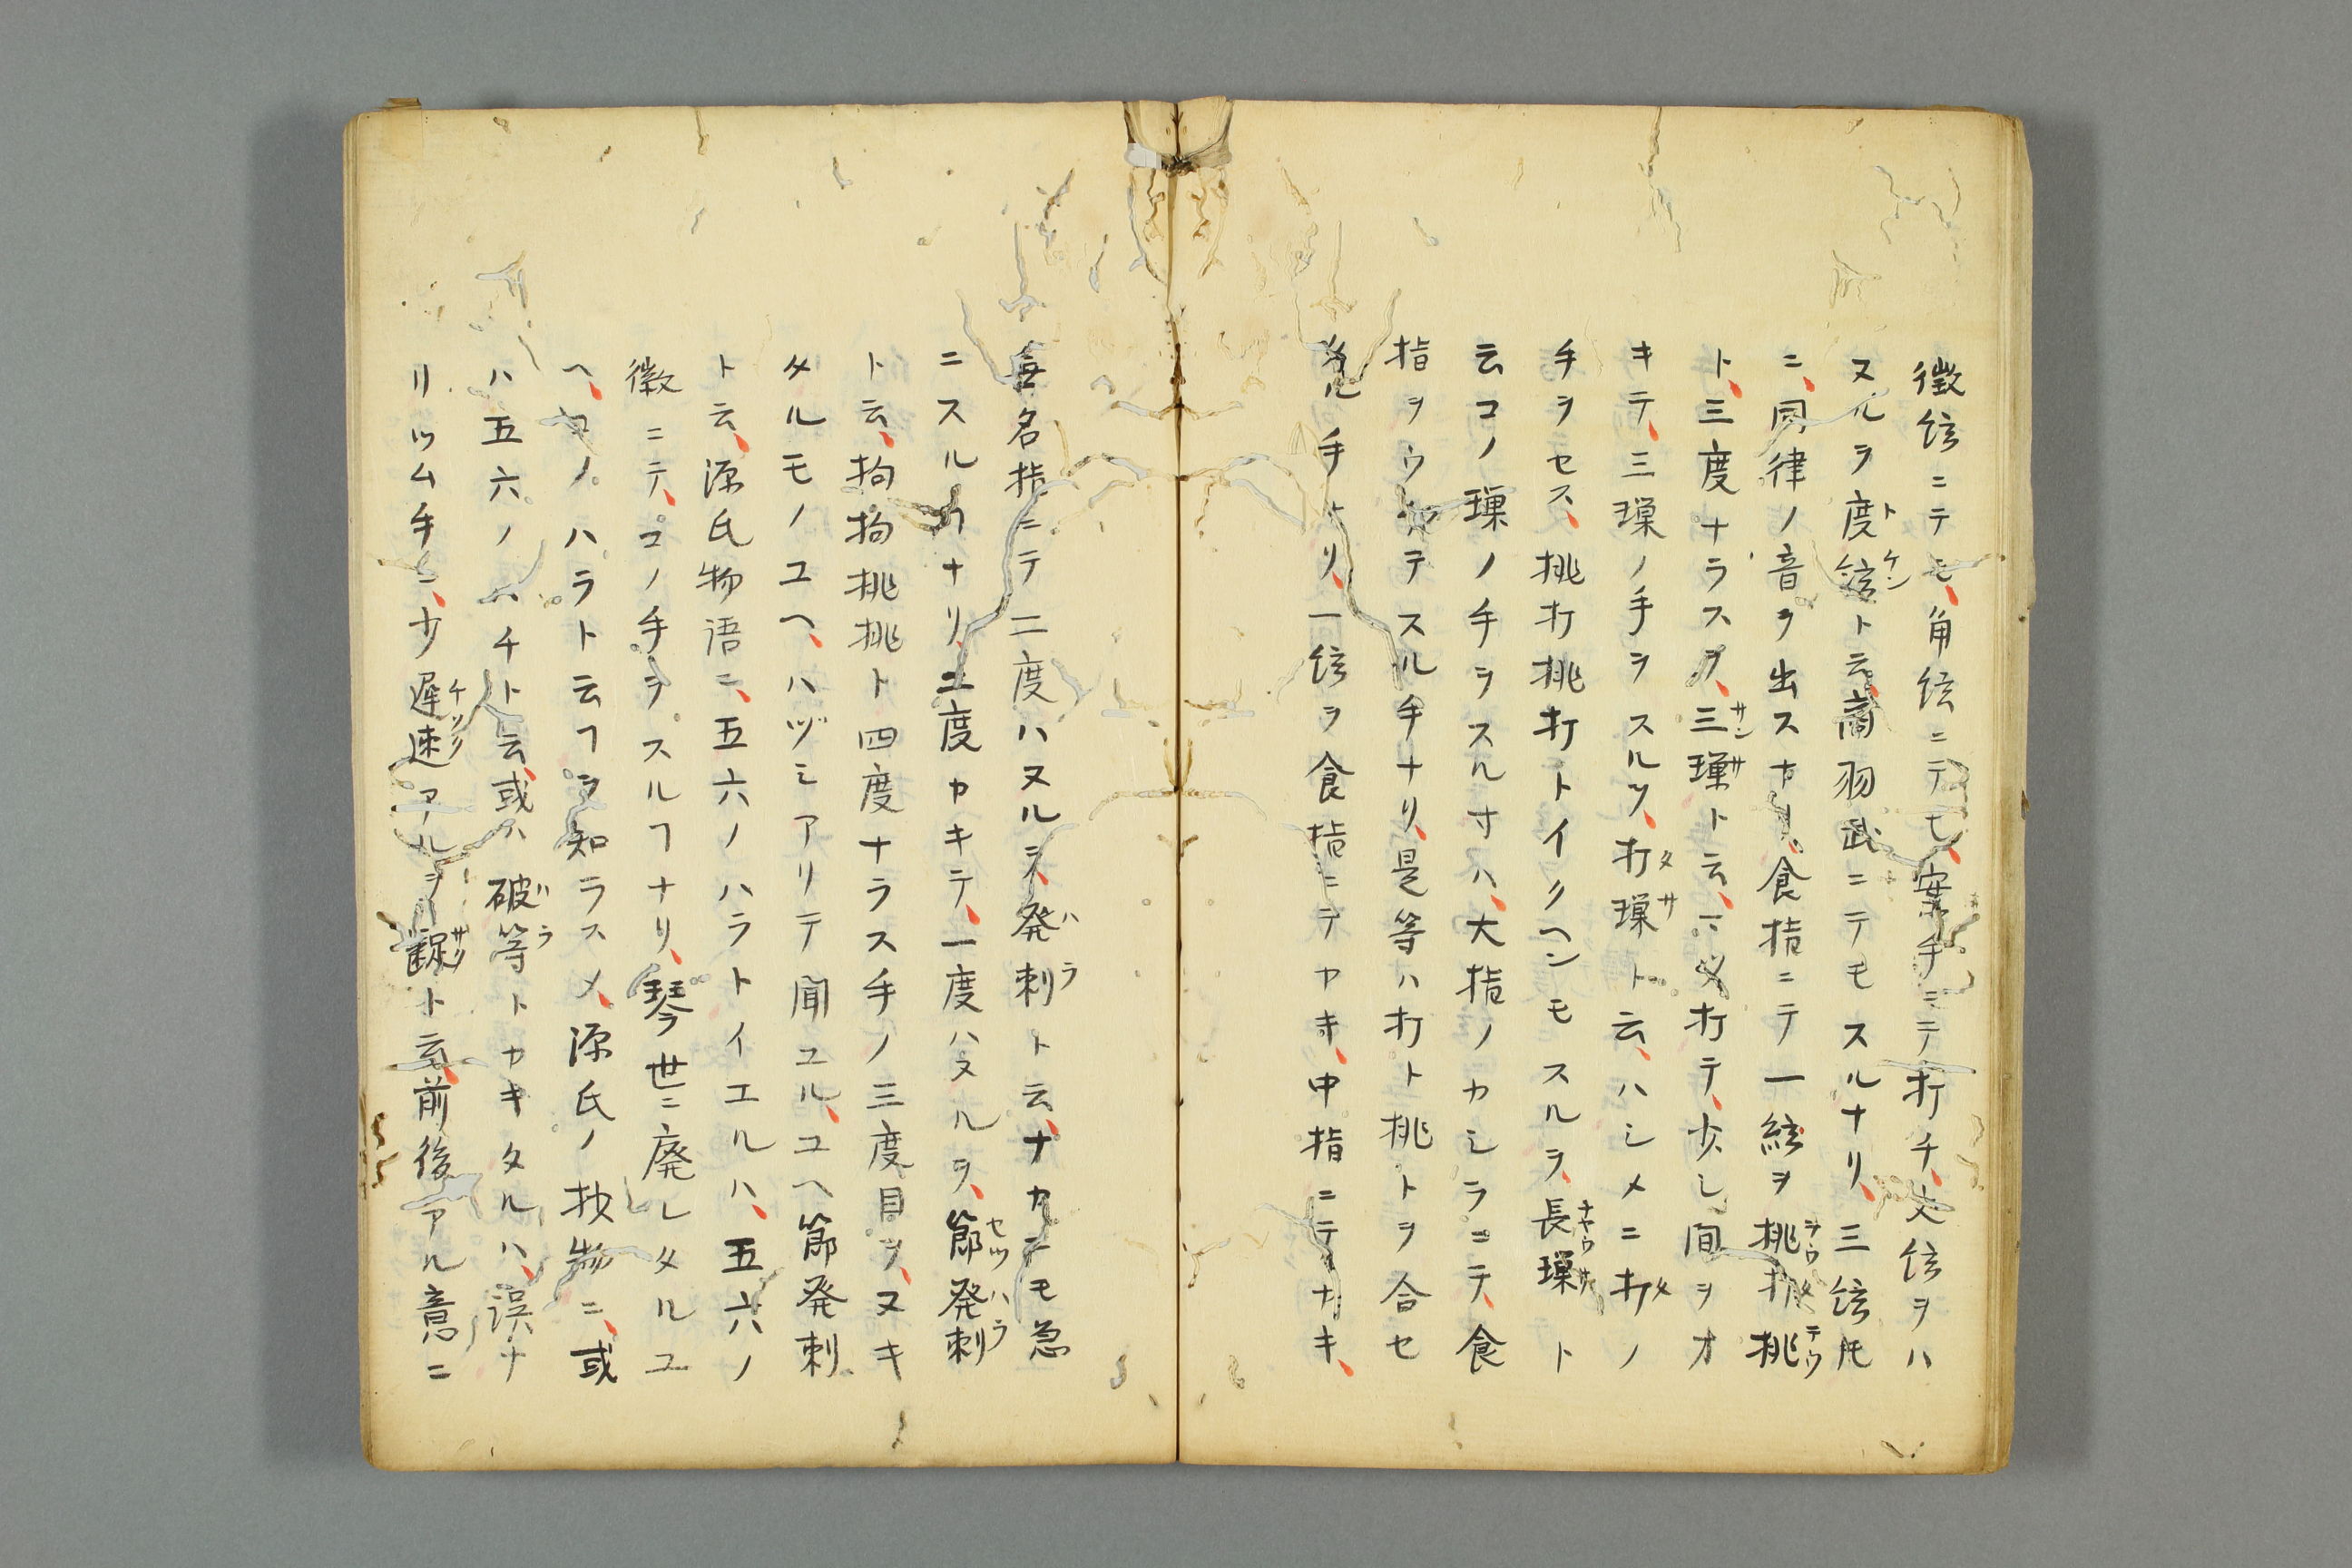 徴絃ニテモ、角絃ニテモ、案手ニテ打チ、文絃ヲハ
ヌルヲ度絃ト云、商羽武ニテモスルナリ、三絃圧
ニ、同律ノ音ヲ出スナリ、食指ニテ一絃ヲ挑打挑
ト、三度ナラスヲ、三璅ト云、又打テ、少シ間ヲオ
キテ、三璅ノ手ヲスルヲ、打璅ト云、ハシメニ打ノ
手ヲセス、挑打挑打トイクヘンモスルヲ、長璅ト
云コノ璅ノ手ヲスル寸ハ、大指ノカシラニテ、食
指ヲウケテスル手ナリ、是等ハ打ト挑トヲ合セ
タル手ナリ、一絃ヲ食指ニテカキ、中指ニテカキ、
無名指ニテ二度ハヌルヲ、発刺ト云、ナカニモ急
ニスルヿナリ、二度カキテ、一度ハヌルヲ、節発刺
ト云、拘拘挑挑ト四度ナラス手ノ三度目ヲ、ヌキ
タルモノユヘ、ハヅミアリテ聞ユル、ユヘ節発刺
ト云、源氏物語ニ、五六ノハラトイエルハ、五六ノ
徽ニテ、コノ手ヲスルヿナリ、琴世ニ廃レタルユ
ヘ、コノハラト云ヿヲ知ラスメ、源氏ノ抄物ニ、或
ハ五六ノハチト云、或ハ破等トカキタルハ、誤ナ
リツム手ニ、少遅速アルヲ齪ト云、前後アル意ニ